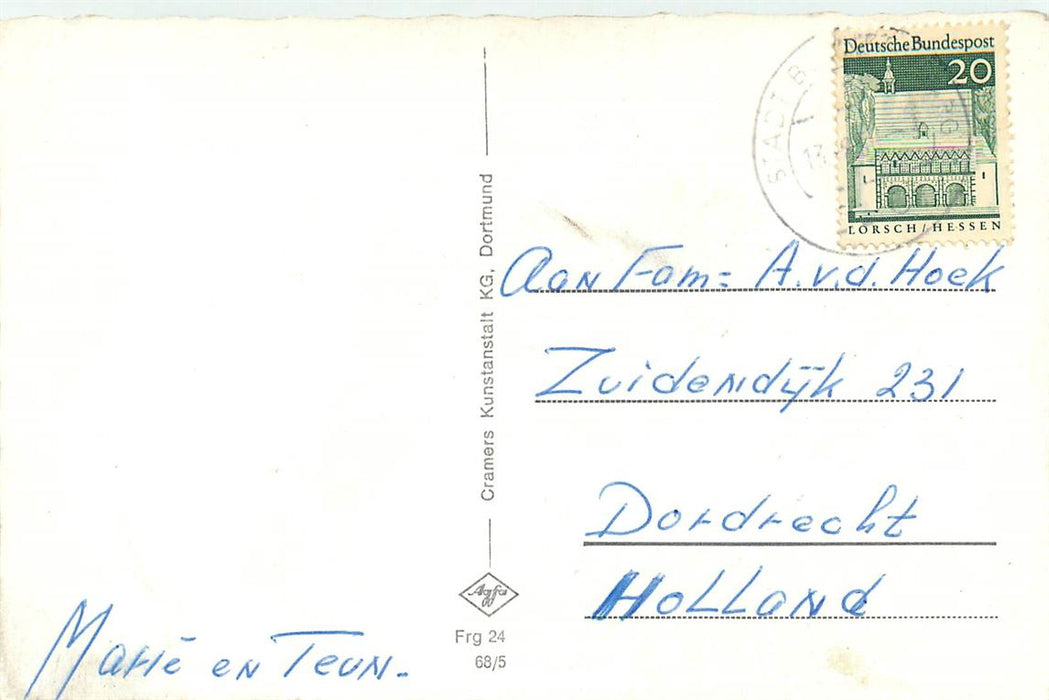 Deutsche Bundespost
20
LORSCH/HESSEN
STADT
Aan Fam= A.v.d. Hoek
Zuidendijk 231
Dordrecht
Holland
Cramers Kunstanstalt KG, Dortmund
Agfa
Frg 24
68/5
Marië en Teun.